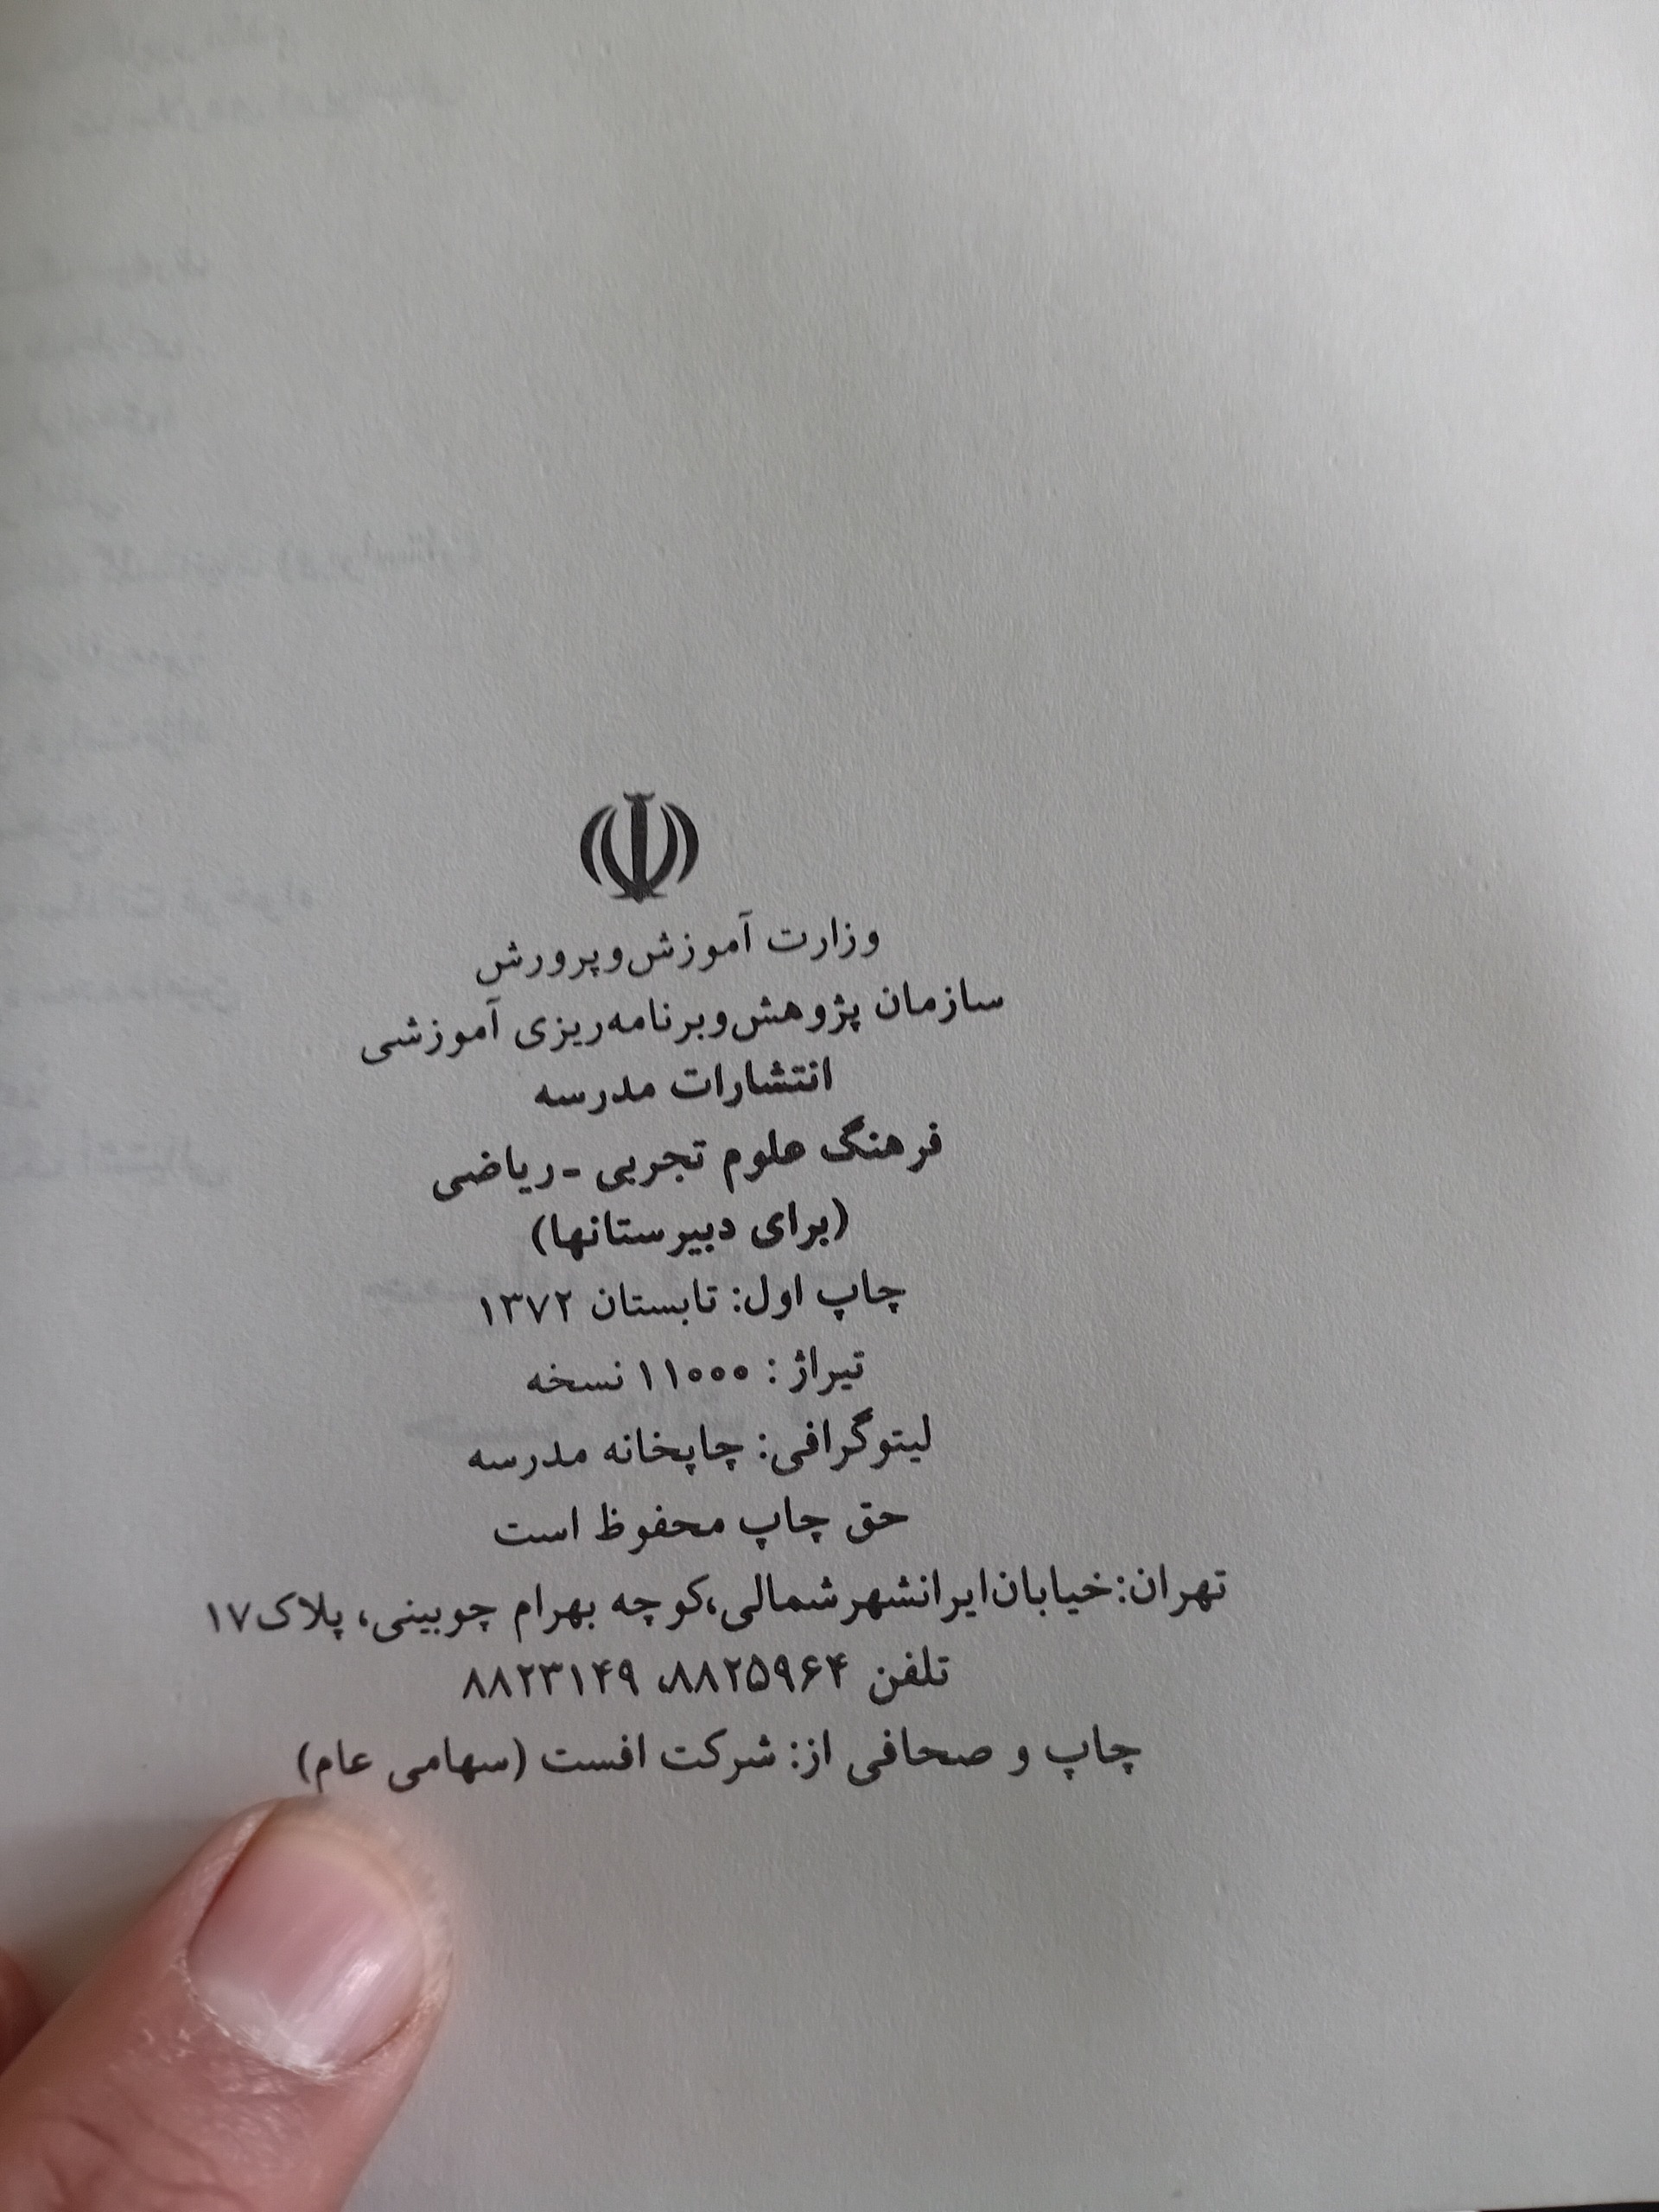 وزارت آموزش‌وپرورش
سازمان پژوهش‌وبرنامه‌ریزی آموزشی
انتشارات مدرسه
فرهنگ علوم تجربی -ریاضی
(برای دبیرستانها)
چاپ اول: تابستان ۱۳۷۲
تیراژ : ۱۱۰۰۰ نسخه
لیتوگرافی: چاپخانه مدرسه
حق چاپ محفوظ است
تهران:خیابان‌ایرانشهرشمالی،کوچه بهرام چوبینی، پلاک۱۷
تلفن ۸۸۲۵۹۶۴، ۸۸۲۳۱۴۹
چاپ و صحافی از: شرکت افست (سهامی عام)